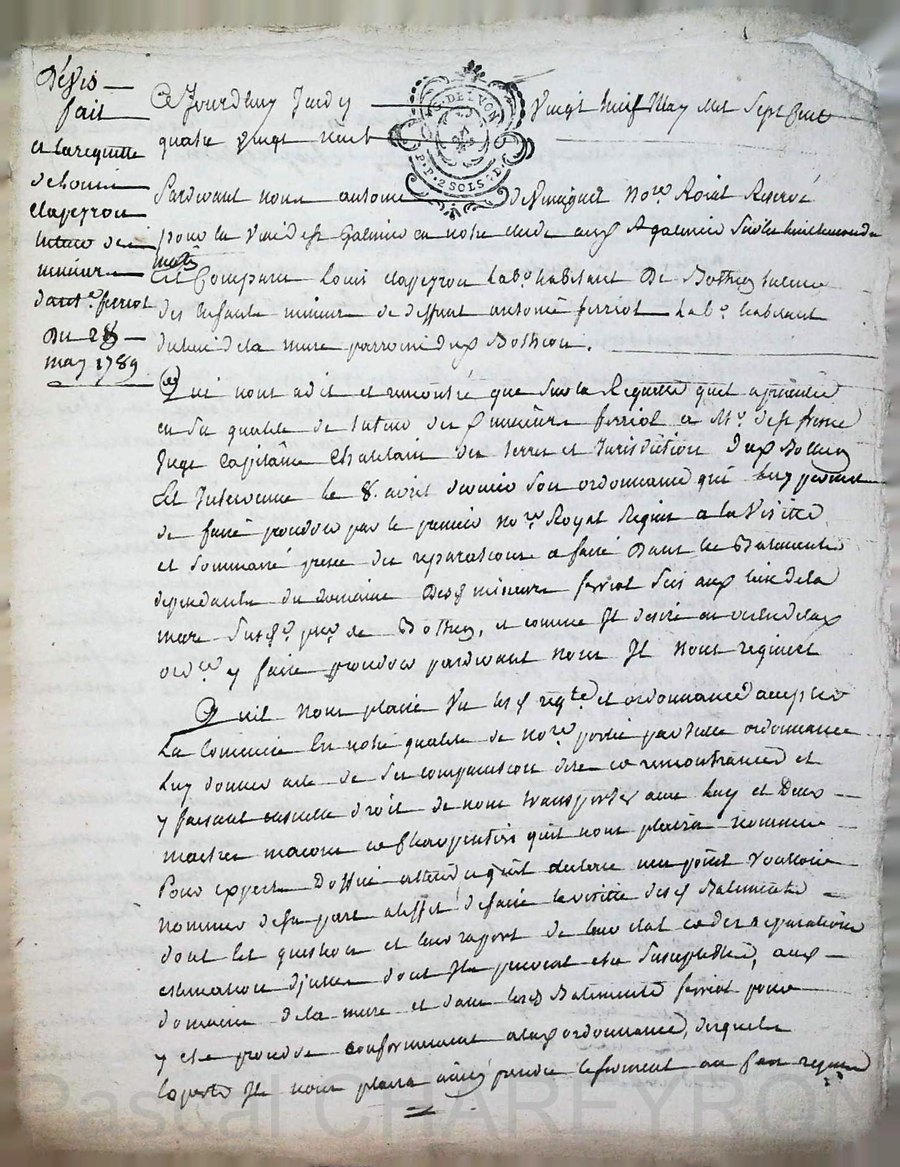 Devis
fait
a la requette
de Louis
clapeyron
tuteur des
mineurs
d'ant.e ferriot
Du 28
may 1789
G. DE LYON
P.P. 2 SOLS. D.
Ce Jourdhuy Jeudy vingt huit May mil sept cent
quatre vingt neuf
Pardevant nous antoine Devinguet No.re Roial Reservé
pour la ville de st Galmier en notre etude aud st galmier sur les huit heures du
matin
Est Comparu Louis clapeyron lab.r habitant De Botheon tuteur
des enfants mineurs de deffunt antoine ferriot lab.r habitant
du lieu de la mure parroisse dud Botheon.
Qui nous a dit et remontré que sur la Requette quil a presentée
en sa qualité de tuteur des d mineurs ferriot a Mr.
Juge Capitaine Chatelain des terres et Jurisdiction dud Botheon
Est Intervenue le 8. avril dernier son ordonnance qui luy permet
de faire proceder par le premier no.re Royal Requis a la Visitte
et sommaire prisee des reparations a faire Dans les Batiments
dependants du domaine Desd mineurs ferriot sis aud lieu de la
mure susd. p.sse de Botheon, et comme Il desire en vertu de lad
ord.ce y faire proceder pardevant nous Il nous requiert
Quil nous plaise vu lesd reg.te et ordonnance accepter
La Commission En notre qualité de no.re portée par ladite ordonnance
Luy donner acte de sa comparution dire et remontrances et
y faisant ensuitte droit de nous transporter avec luy et Deux
maitres macons et Charpentiers quil nous plaira nommer
Pour experts D'office attendu quil declare ne point vouloir
nommer de sa part a leffet de faire la visitte desd Batiments
dont est question et leur raport de leur etat et des reparations
estimation d'jcelles dont Ils peuvent etre susceptibles, aud
domaine de la mure et dans lesd Batiments ferriot pour
y etre procedé conformement a lad ordonnance, desquels
experts Il nous plaira aussy prendre le serment au cas requis
Pascal CHAREYRON